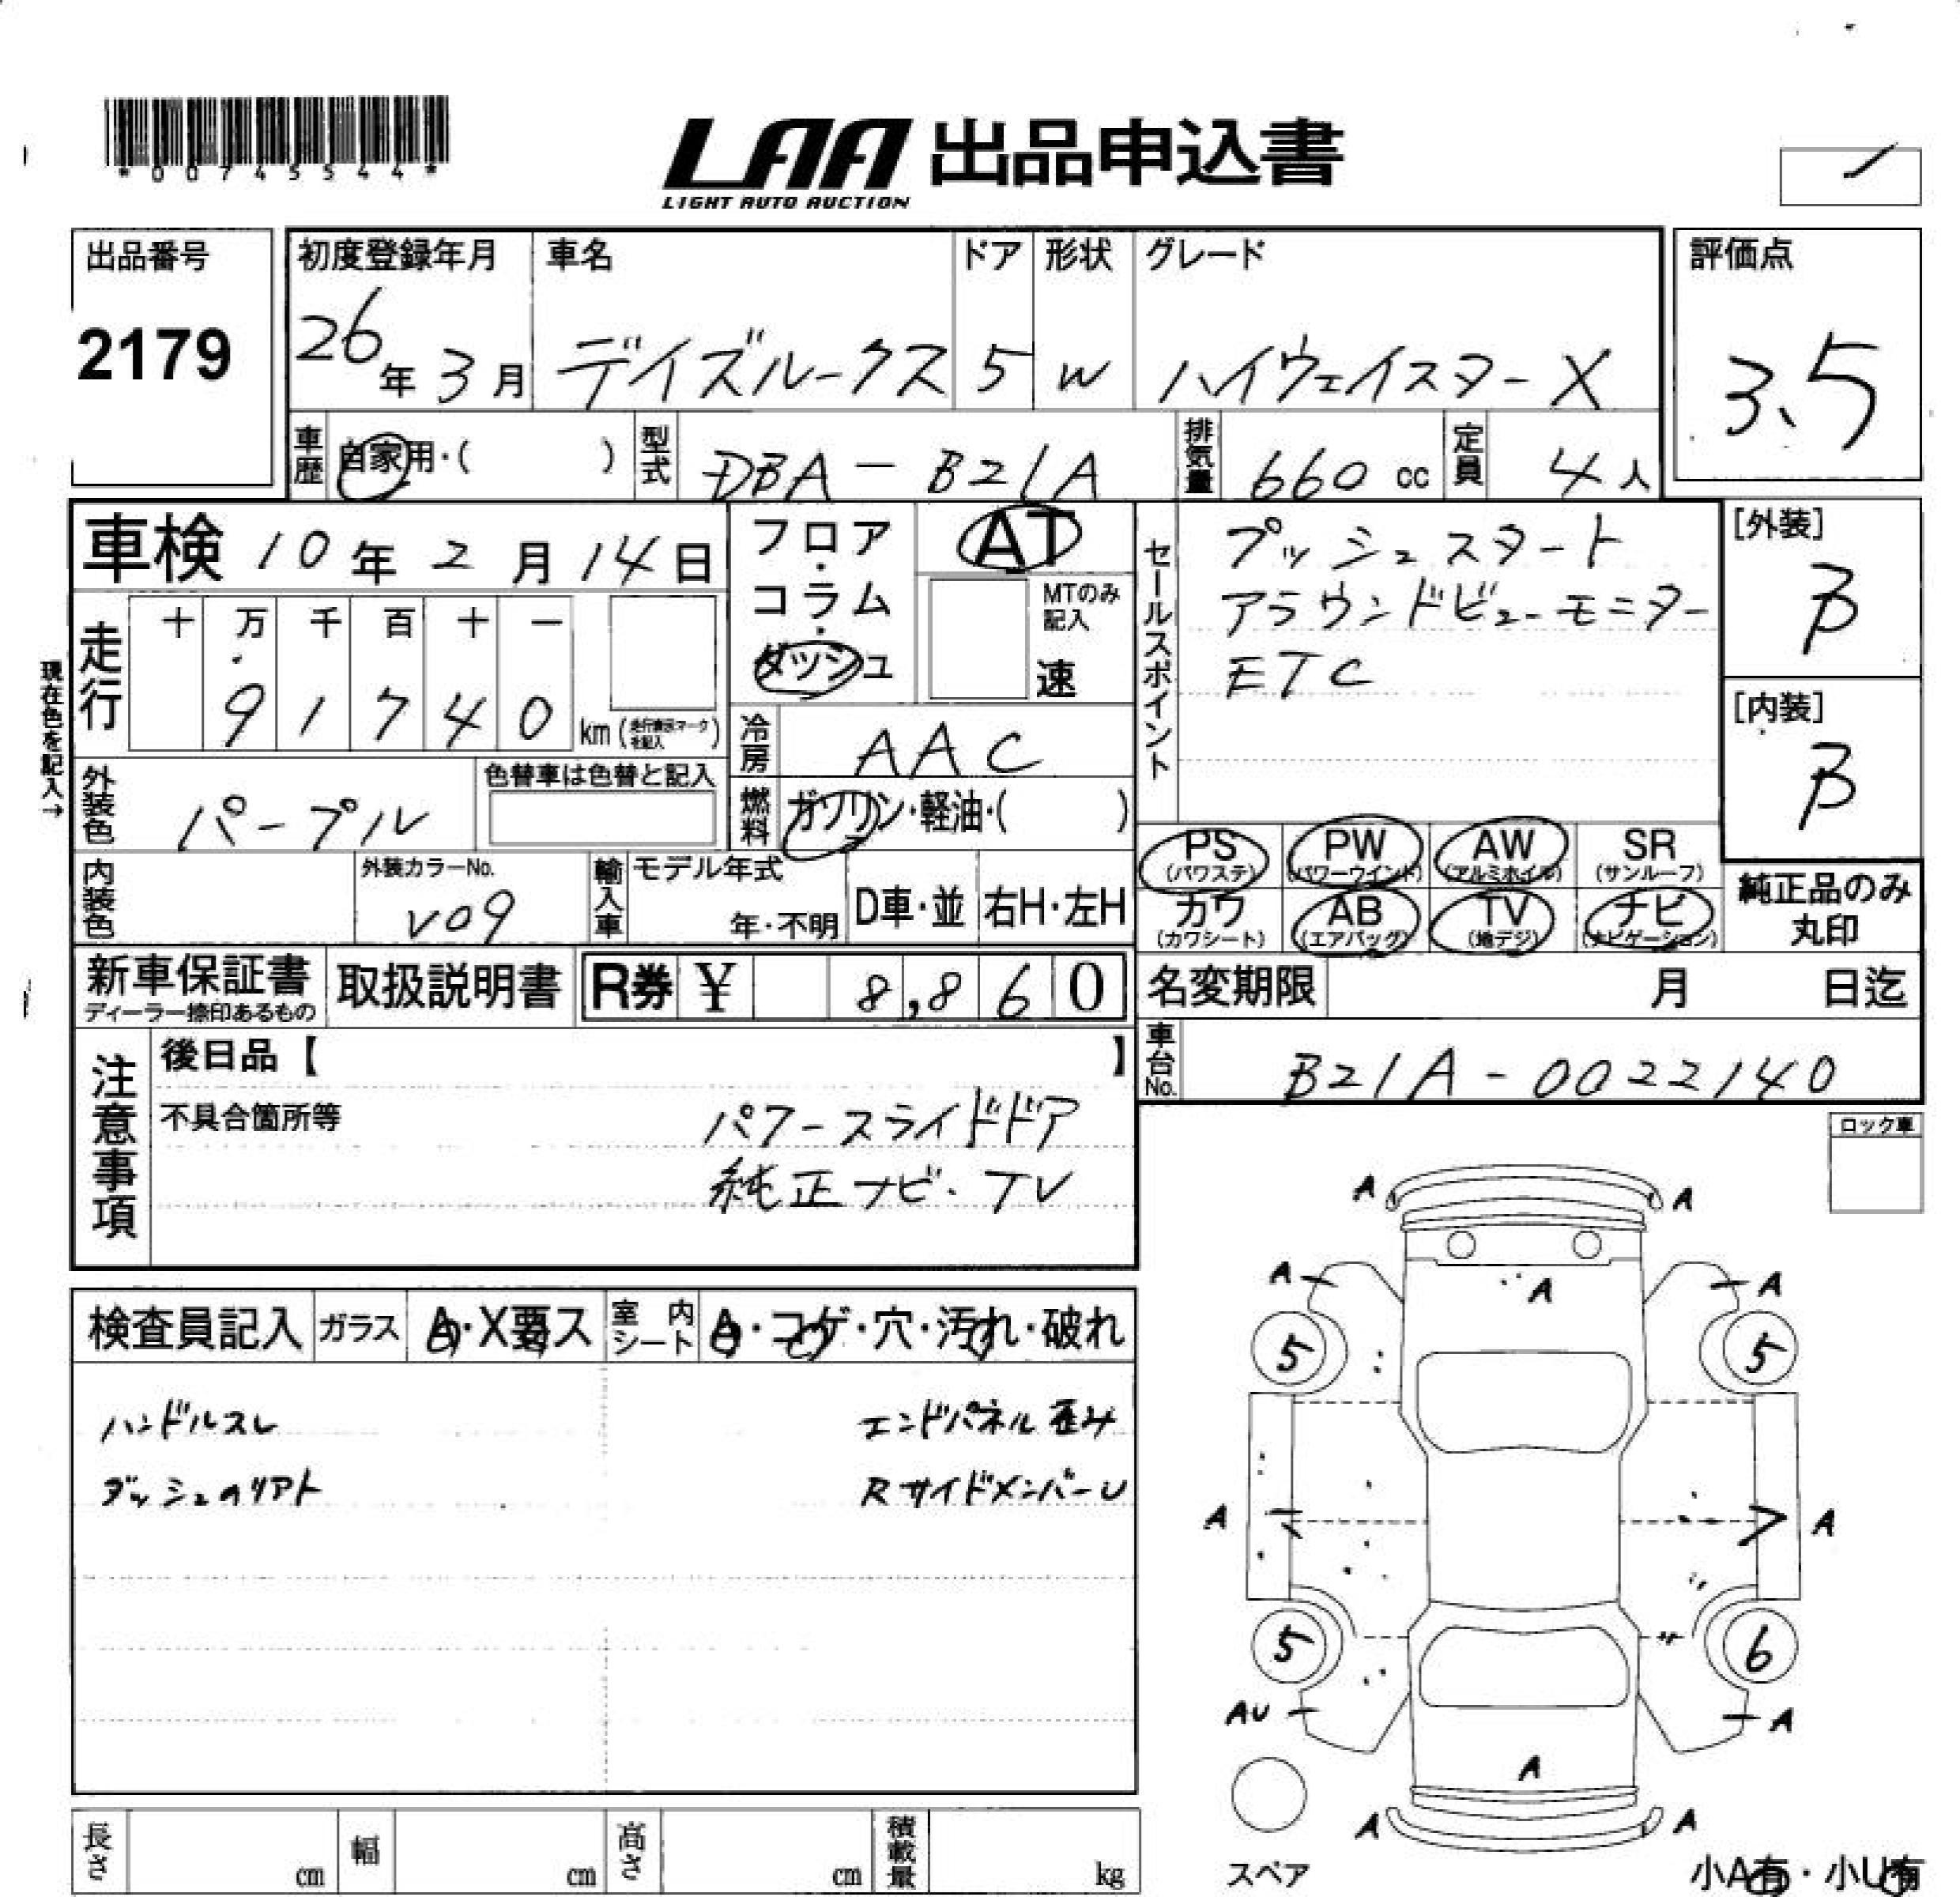 *00745544*
LAA 出品申込書
LIGHT AUTO AUCTION
出品番号
2179
初度登録年月
26年3月
車名
デイズルークス
ドア
5
形状
W
グレード
ハイウェイスターX
評価点
3.5
車歴
自家用・( )
型式
DBA-B21A
排気量
660 cc
定員
4人
車検 10年2月14日
フロア・コラム・ダッシュ
AT
MTのみ記入
速
セールスポイント
プッシュスタート
アラウンドビューモニター
ETC
[外装]
B
[内装]
B
現在色を記入→
走行
十 万 千 百 十 一
9 1 7 4 0 km (走行表示マークを記入)
冷房
AAC
外装色
パープル
色替車は色替と記入
燃料
ガソリン・軽油・( )
PS (パワステ)
PW (パワーウインド)
AW (アルミホイル)
SR (サンルーフ)
カワ (カワシート)
AB (エアバッグ)
TV (地デジ)
ナビ (ナビゲーション)
純正品のみ
丸印
内装色
外装カラーNo.
V09
輸入車
モデル年式
年・不明
D車・並
右H・左H
新車保証書
ディーラー捺印あるもの
取扱説明書
R券 ¥ 8,860
名変期限 月 日迄
車台No.
B21A-0022140
注意事項
後日品【 】
不具合箇所等
パワースライドドア
純正ナビ・TV
ロック車
検査員記入
ガラス
A・X要ス
室内シート
A・コゲ・穴・汚れ・破れ
ハンドルスレ
エンドパネル歪み
ダッシュのリアト
RサイドメンバーU
A A
A A A
5 5
A A
5 6
AU A
A
A A
スペア
長さ cm
幅 cm
高さ cm
積載量 kg
小A有・小U有